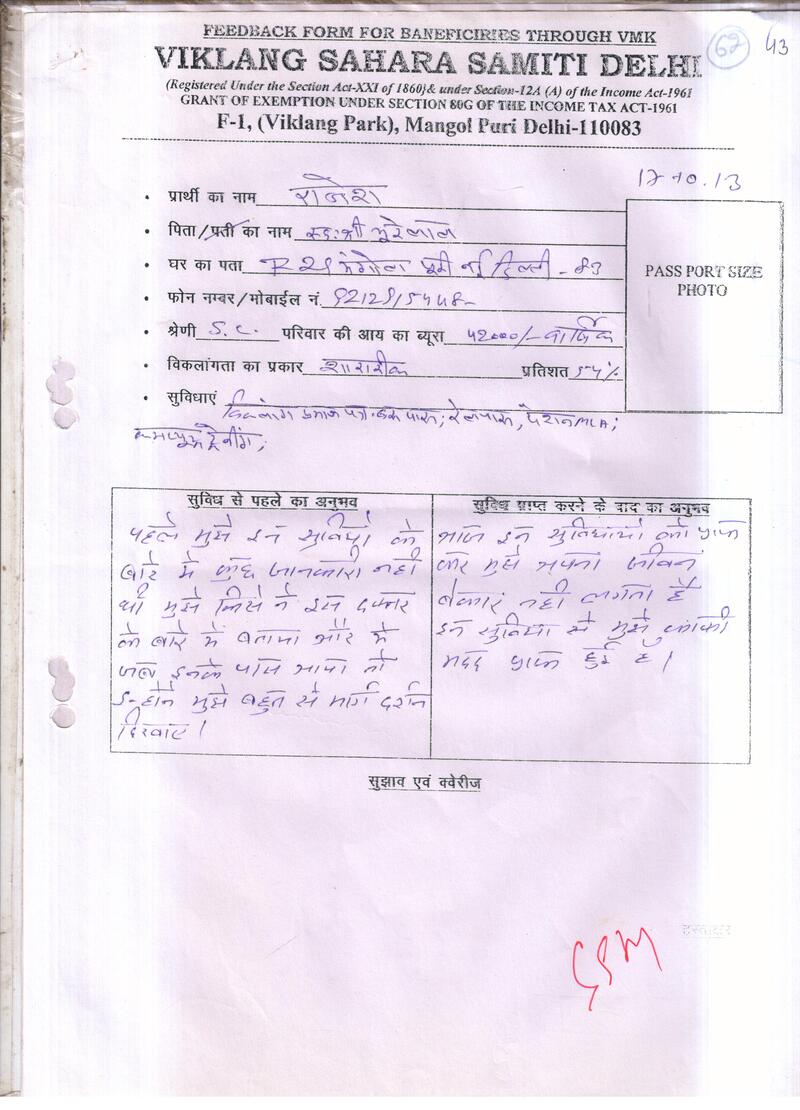 FEEDBACK FORM FOR BANEFICIRIES THROUGH VMK
62 43
VIKLANG SAHARA SAMITI DELHI
(Registered Under the Section Act-XXI of 1860)& under Section-12A (A) of the Income Act-1961
GRANT OF EXEMPTION UNDER SECTION 80G OF THE INCOME TAX ACT-1961
F-1, (Viklang Park), Mangol Puri Delhi-110083
17-10.13
• प्रार्थी का नाम राजेश
• पिता/प्रती का नाम स्व:श्री भूरेलाल
• घर का पता मंगोल पूरी नई दिल्ली - 83
• फोन नम्बर/मोबाईल नं.
• श्रेणी S.C. परिवार की आय का ब्यूरा 42000/- वार्षिक
• विकलांगता का प्रकार शारारीक प्रतिशत 54%
• सुविधाएं विकलांग प्रमाण पत्र, बस पास, रेलपास, पेंशन MLA;
कम्प्यूटर ट्रेनींग;
PASS PORT SIZE
PHOTO
सुविध से पहले का अनुभव
पहले मुझे इन सुविधो के
बारे मे कुछ जानकारी नही
थी मुझे किसे ने इस दफ्तर
के बारे में बताया और मे
जब इनके पास आया तो
इन्होने मुझे बहुत से मार्ग दर्शन
दिखाए।
सुविध प्राप्त करने के बाद का अनुभव
आज इन सुविधायो को प्राप्त
कर मुझे अपना जीवन
बेकार नही लगता है
इन सुविधा से मुझे काफी
मदद प्राप्त हुई है।
सुझाव एवं क्वेरीज
हस्ताक्षर